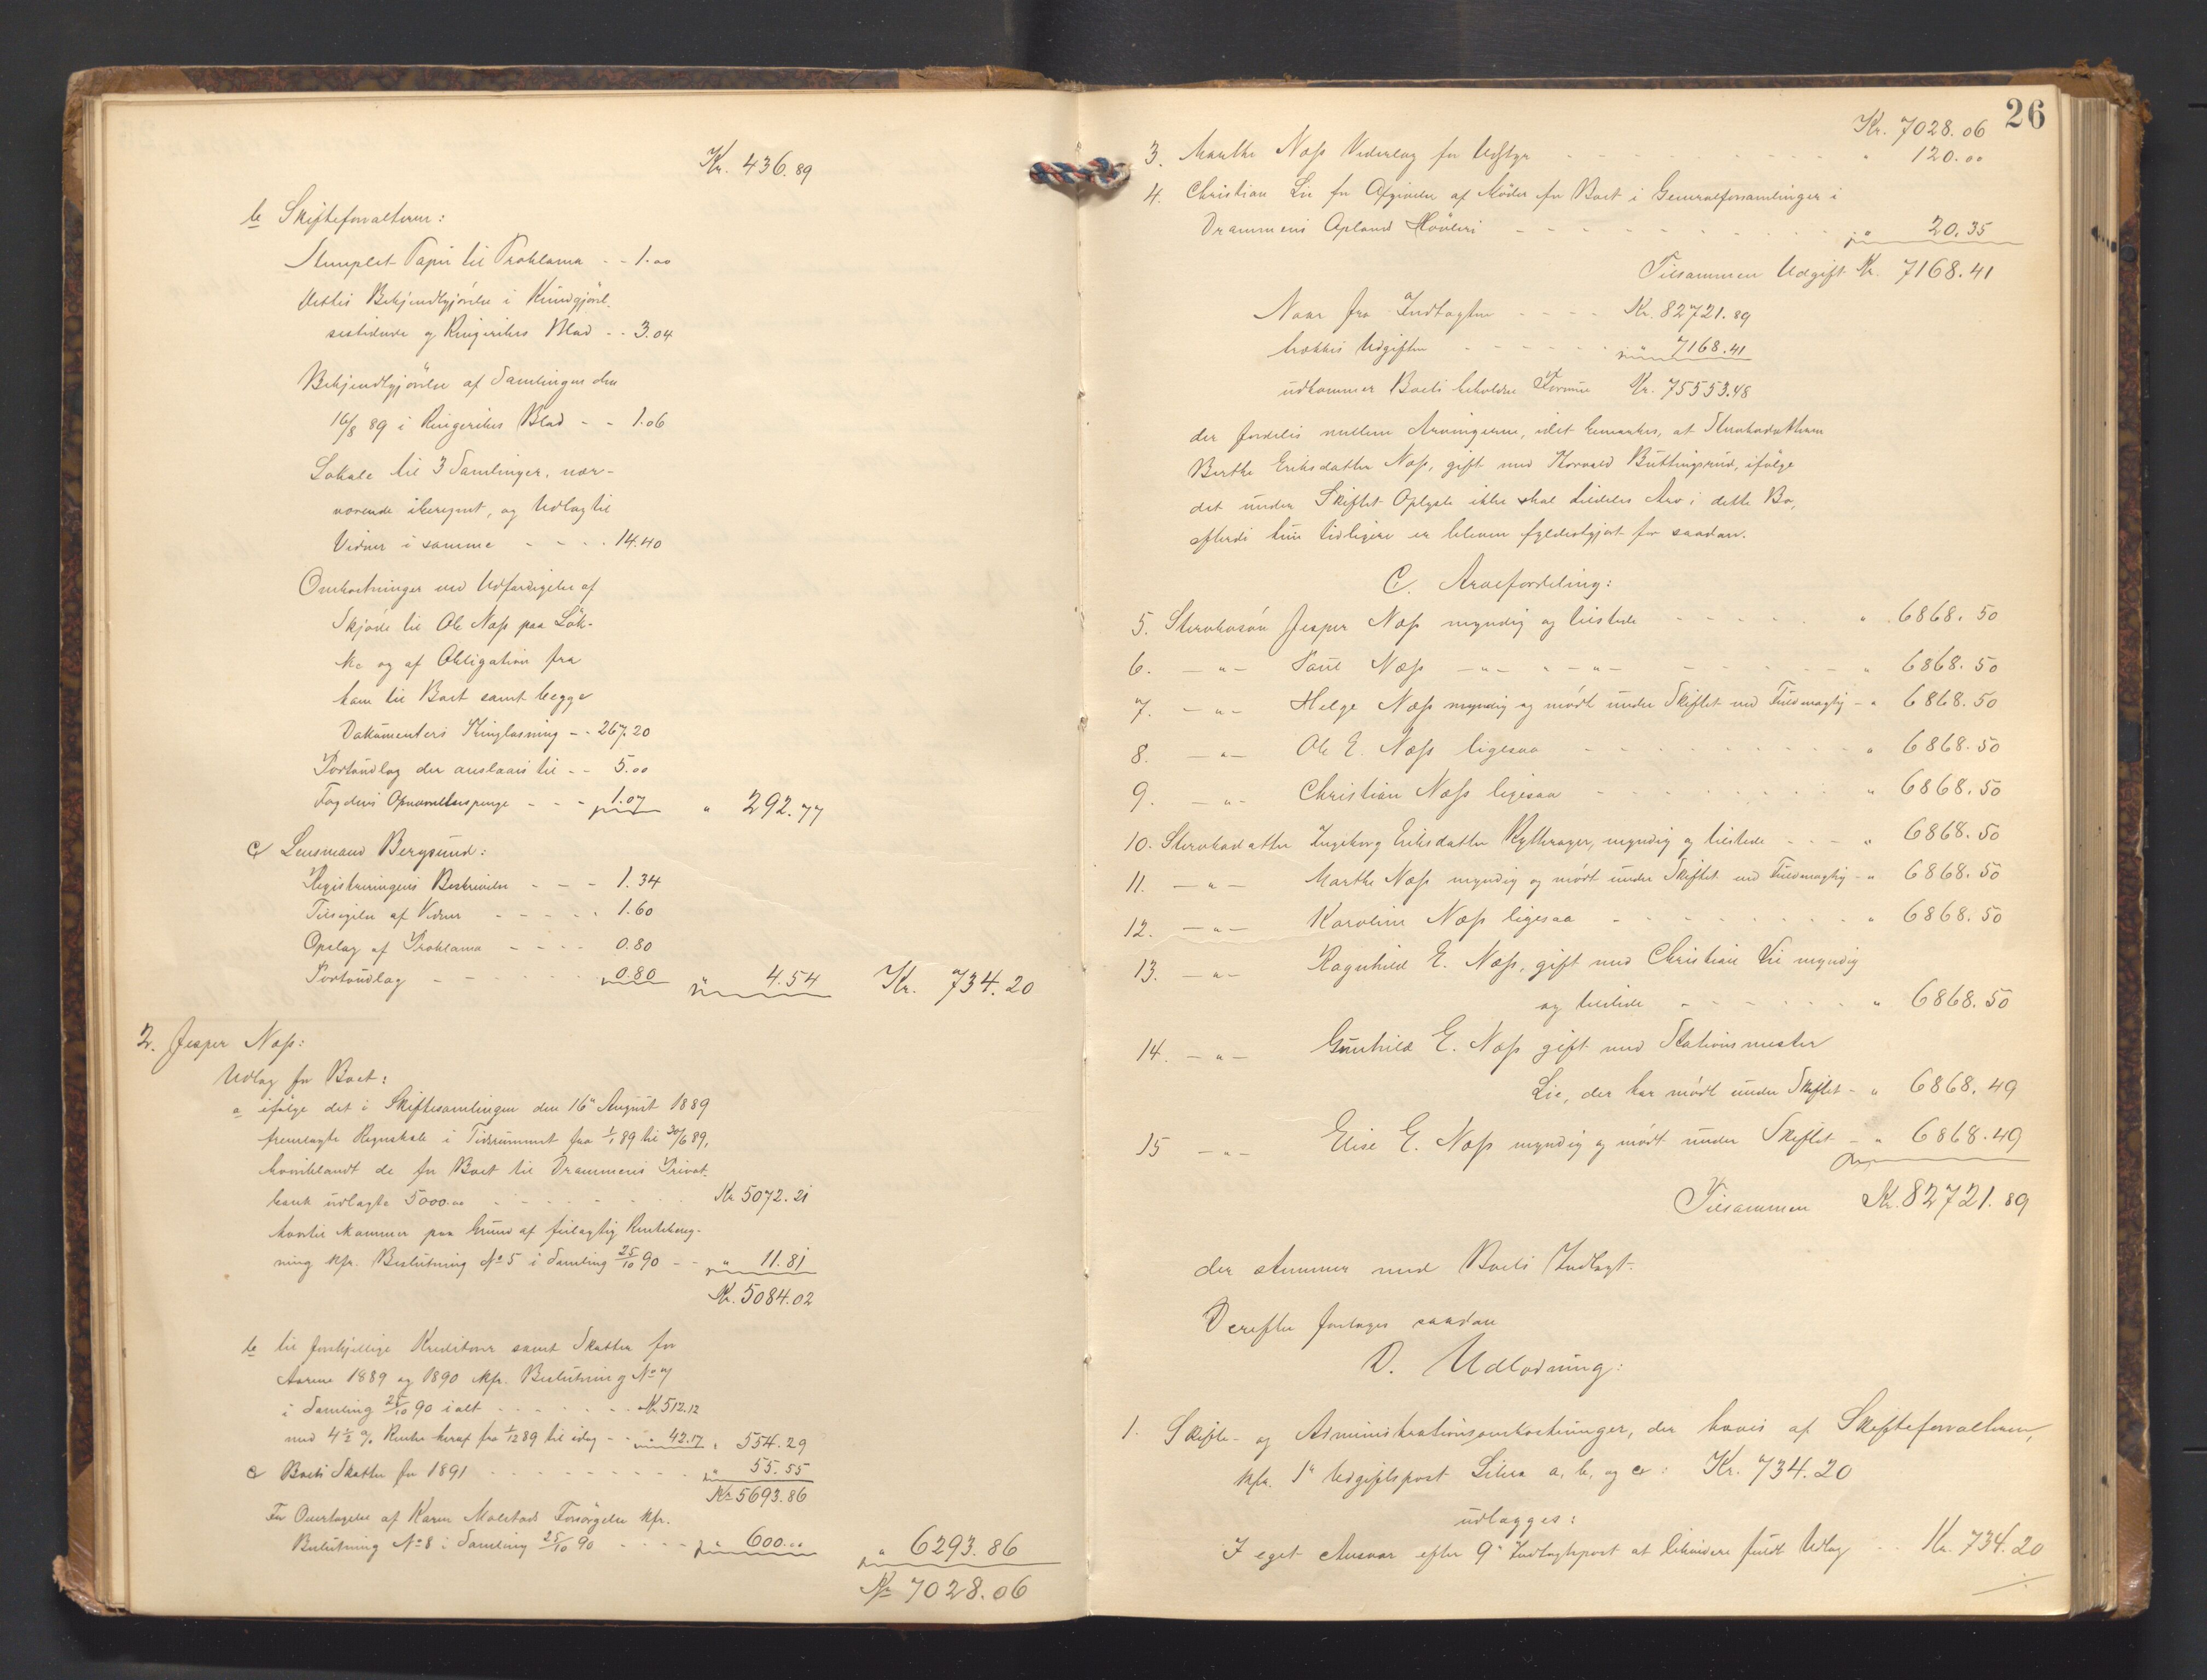 Kr. 436.89
b Skifteforvalteren:
Stemplet Papir til Proklama - - 1.00
dettes Bekjendtgjörelse i Kundgjörel-
sestidende og Ringerikes Blad - - 3.04
Bekjendtgjörelse af Samlingen den
16/8 89 i Ringerikes Blad - - 1.06
Lokale til 3 Samlinger, nær-
værende iberegnet, og Udlæg til
Vidner i samme - - - - 14.40
Omkostninger ved Udfærdigelse af
Skjöde til Ole Næss paa Løk-
ke og af Obligation fra
ham til Boet samt begge
Dokumenters Thinglæsning - - 267.20
Portoudlæg der anslaaes til - - 5.00
Fogdens Opnævnelsespenge - - - 1.07 " 292.77
c Lensmand Bergsund:
Registreringens Beskrivelse - - - 1.34
Tilsigelse af Vidner - - - - - 1.60
Opslag af Proklama - - - - 0.80
Portoudlæg - - - - - - 0.80 " 4.54 Kr. 734.20
2. Jesper Næss:
Udlæg for Boet:
a ifölge det i Skiftesamlingen den 16de August 1889
fremlagte Regnskab i Tidsrummet fra 1/1 89 til 30/6 89,
hvoriblandt de for Boet til Drammens Privat-
bank udlagte 5000.00 - - - - - - - Kr 5072.21
hvortil kommer paa Grund af feilagtig Rentebereg-
ning kfr. Beslutning No 5 i Samling 25/10 90 - - " 11.81
Kr. 5084.02
b til forskjellige Kreditorer samt Skatter for
Aarene 1889 og 1890 kfr. Beslutning No 7
i Samling 25/10 90 ialt - - - - - - Kr. 512.12
med 4½ % Rente heraf fra 1/12 89 til idag - - 42.17 " 554.29
c Boets Skatter for 1891 - - - - - - - - - " 55.55
Kr 5693.86
For Overtagelse af Karen Molstads Forsörgelse kfr.
Beslutning No 8 i Samling 25/10 90 - - - - " 600.00 " 6293.86
Kr 7028.06
26
Kr. 7028.06
3. Marthe Næss Vederlag for Udstyr - - - - - - - - - - " 120.00
4. Christian Lie for Afgivelse af Möder for Boet i Generalforsamlinger i
Drammens Opland Hövleri - - - - - - - - - - " 20.35
Tilsammen Udgift Kr. 7168.41
Naar fra Indtægten - - - - Kr. 82721.89
trækkes Udgiften - - - - - - " 7168.41
udkommer Boets beholdne Formue Kr. 75553.48
der fordeles mellem Arvingerne, idet bemærkes, at Stervbodatteren
Berthe Eriksdatter Næss, gift med Thorvald Buttingsrud, ifölge
det under Skiftet Oplyste ikke skal tildeles Arv i dette Bo,
efterdi hun tidligere er bleven fyldestgjort for saadan.
C. Arvefordeling:
5. Stervbosön Jesper Næss myndig og tilstede - - - - - " 6868.50
6. - " - Paul Næss - " - " - " - - - - - - " 6868.50
7. - " - Helge Næss myndig og mödt under Skiftet ved Fuldmægtig - " 6868.50
8. - " - Ole E. Næss ligesaa - - - - - - - - - " 6868.50
9. - " - Christian Næss ligesaa - - - - - - - - " 6868.50
10. Stervbodatter Ingeborg Eriksdatter Kytherager, myndig og tilstede - - - " 6868.50
11. - " - Marthe Næss myndig og mödt under Skiftet ved Fuldmægtig - " 6868.50
12. - " - Karoline Næss ligesaa - - - - - - - - - " 6868.50
13. - " - Ragnhild E. Næss, gift med Christian Lie myndig
og tilstede - - - - - - - " 6868.50
14. - " - Gunhild E. Næss gift med Stationsmester
Lie, der har mödt under Skiftet - " 6868.49
15 - " - Elise E. Næss myndig og mödt under Skiftet - " 6868.49
Tilsammen Kr. 82721.89
der stemmer med Boets Indtægt.
Derefter foretages saadan
D. Udlodning:
1. Skifte- og Administrationsomkostninger, der haves af Skifteforvalteren,
kfr. 1ste Udgiftspost Litra a, b, og c: Kr. 734.20
udlægges:
I eget Ansvar efter 9de Indtægtspost at likvidere fuldt Udlæg - - Kr. 734.20